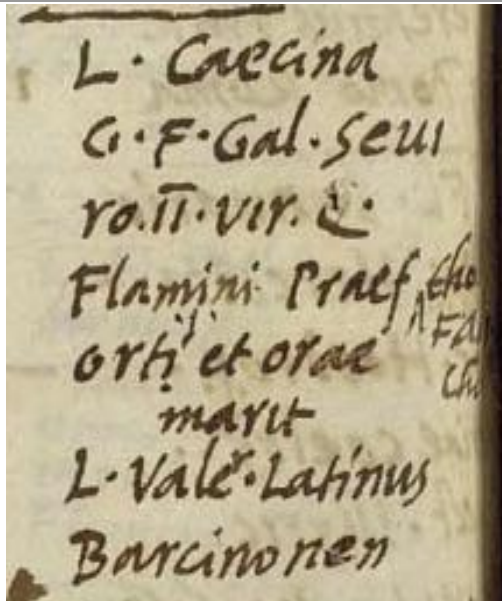 L. Caecina
G. F. Gal. Seui
ro. II. vir. C.
Flamini Praef
orti et orae
marit
L. Valer. Latinus
Barcinonen